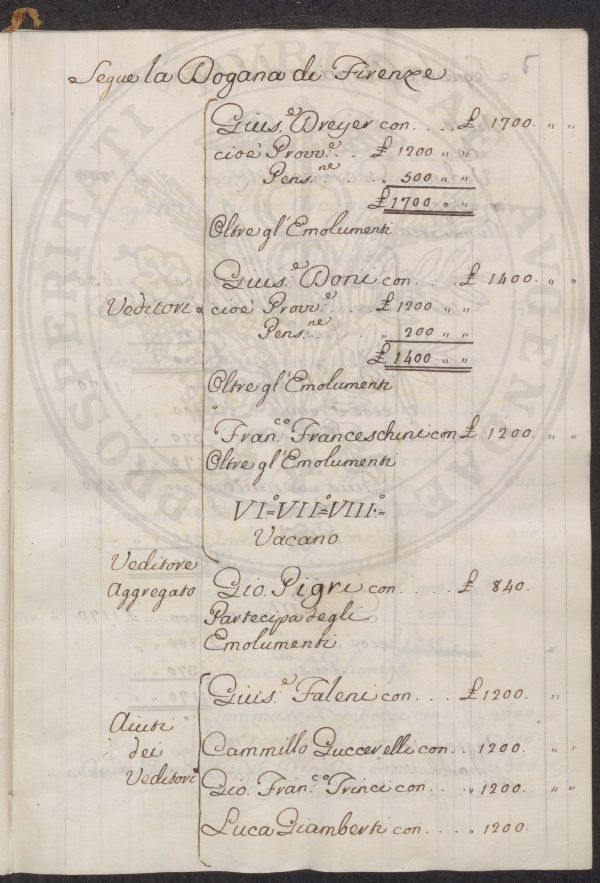 5
Segue la Dogana di Firenze
Gius.e Dreyer con .... £ 1700. " "
cioè Provv.e .. £ 1200 " "
Pens.ne .... 500 " "
£ 1700 " "
Oltre gl'Emolumenti
Gius.e Doni con ... £ 1400. " "
Veditori
cioè Provv.e .. £ 1200 " "
Pens.ne .... " 200 " "
£ 1400 " "
Oltre gl'Emolumenti
Fran.co Franceschini con £ 1200. " "
Oltre gl'Emolumenti
VI°=VII°=VIII°=
Vacano
Veditore
Aggregato
Gio. Pigri con ..... £ 840.
Partecipa degli
Emolumenti
Gius.e Faleni con ... £ 1200. "
Aiuti
dei
Veditori
Cammillo Guccerelli con .. 1200. " "
Gio. Fran.co Trinci con ... " 1200. " "
Luca Giamberti con .... " 1200.
PROSPERITATI PUBLICAE AUGENDAE